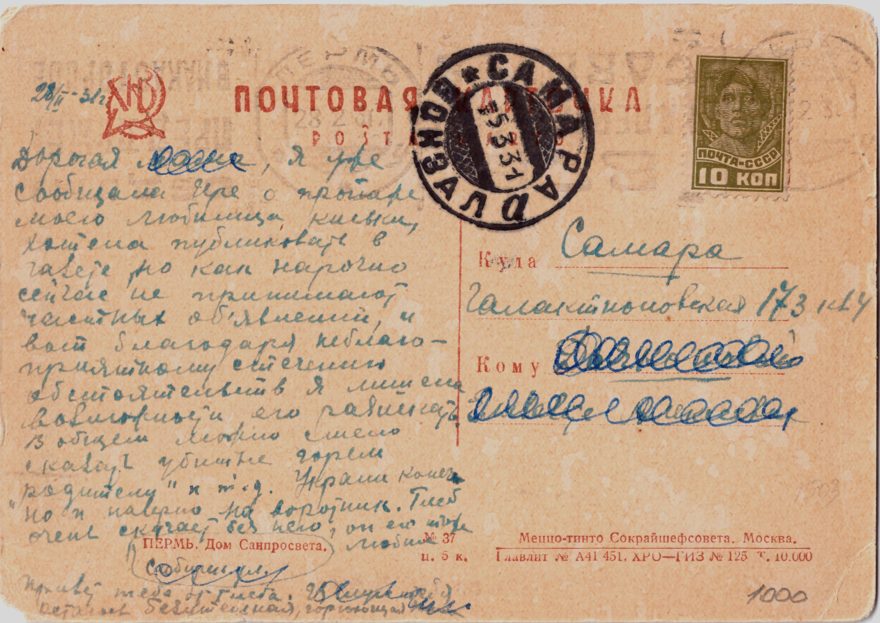 28/II-31г.
ПОЧТОВАЯ КАРТОЧКА
САМАРА
ВОКЗАЛ
5.3.31
ПОЧТА·СССР
10 КОП
Дорогая, я уже
сообщала Вере о пропаже
моего любимца киевки,
хотела публиковать в
газете, но как нарочно
сейчас не принимают
частных об'явлений, и
вот благодаря неблаго-
приятному стечению
обстоятельств я лишена
возможности его разыскать.
В общем можно смело
сказать „убитые горем
родители" и т.д. Украли конеч-
но и наверно на воротник. Глеб
очень скучает без него, он его тоже
любил
Привет тебе от Глеба.
остаюсь безутешная, горюющая
ПЕРМЬ. Дом Санпросвета.
№ 37
ц. 5 к.
Куда Самара
Галактионовская 173 кв 4
Кому
Меццо-тинто Сокрайшефсовета. Москва.
Главлит № А41 451. ХРО—ГИЗ № 125 Т. 10.000
1000